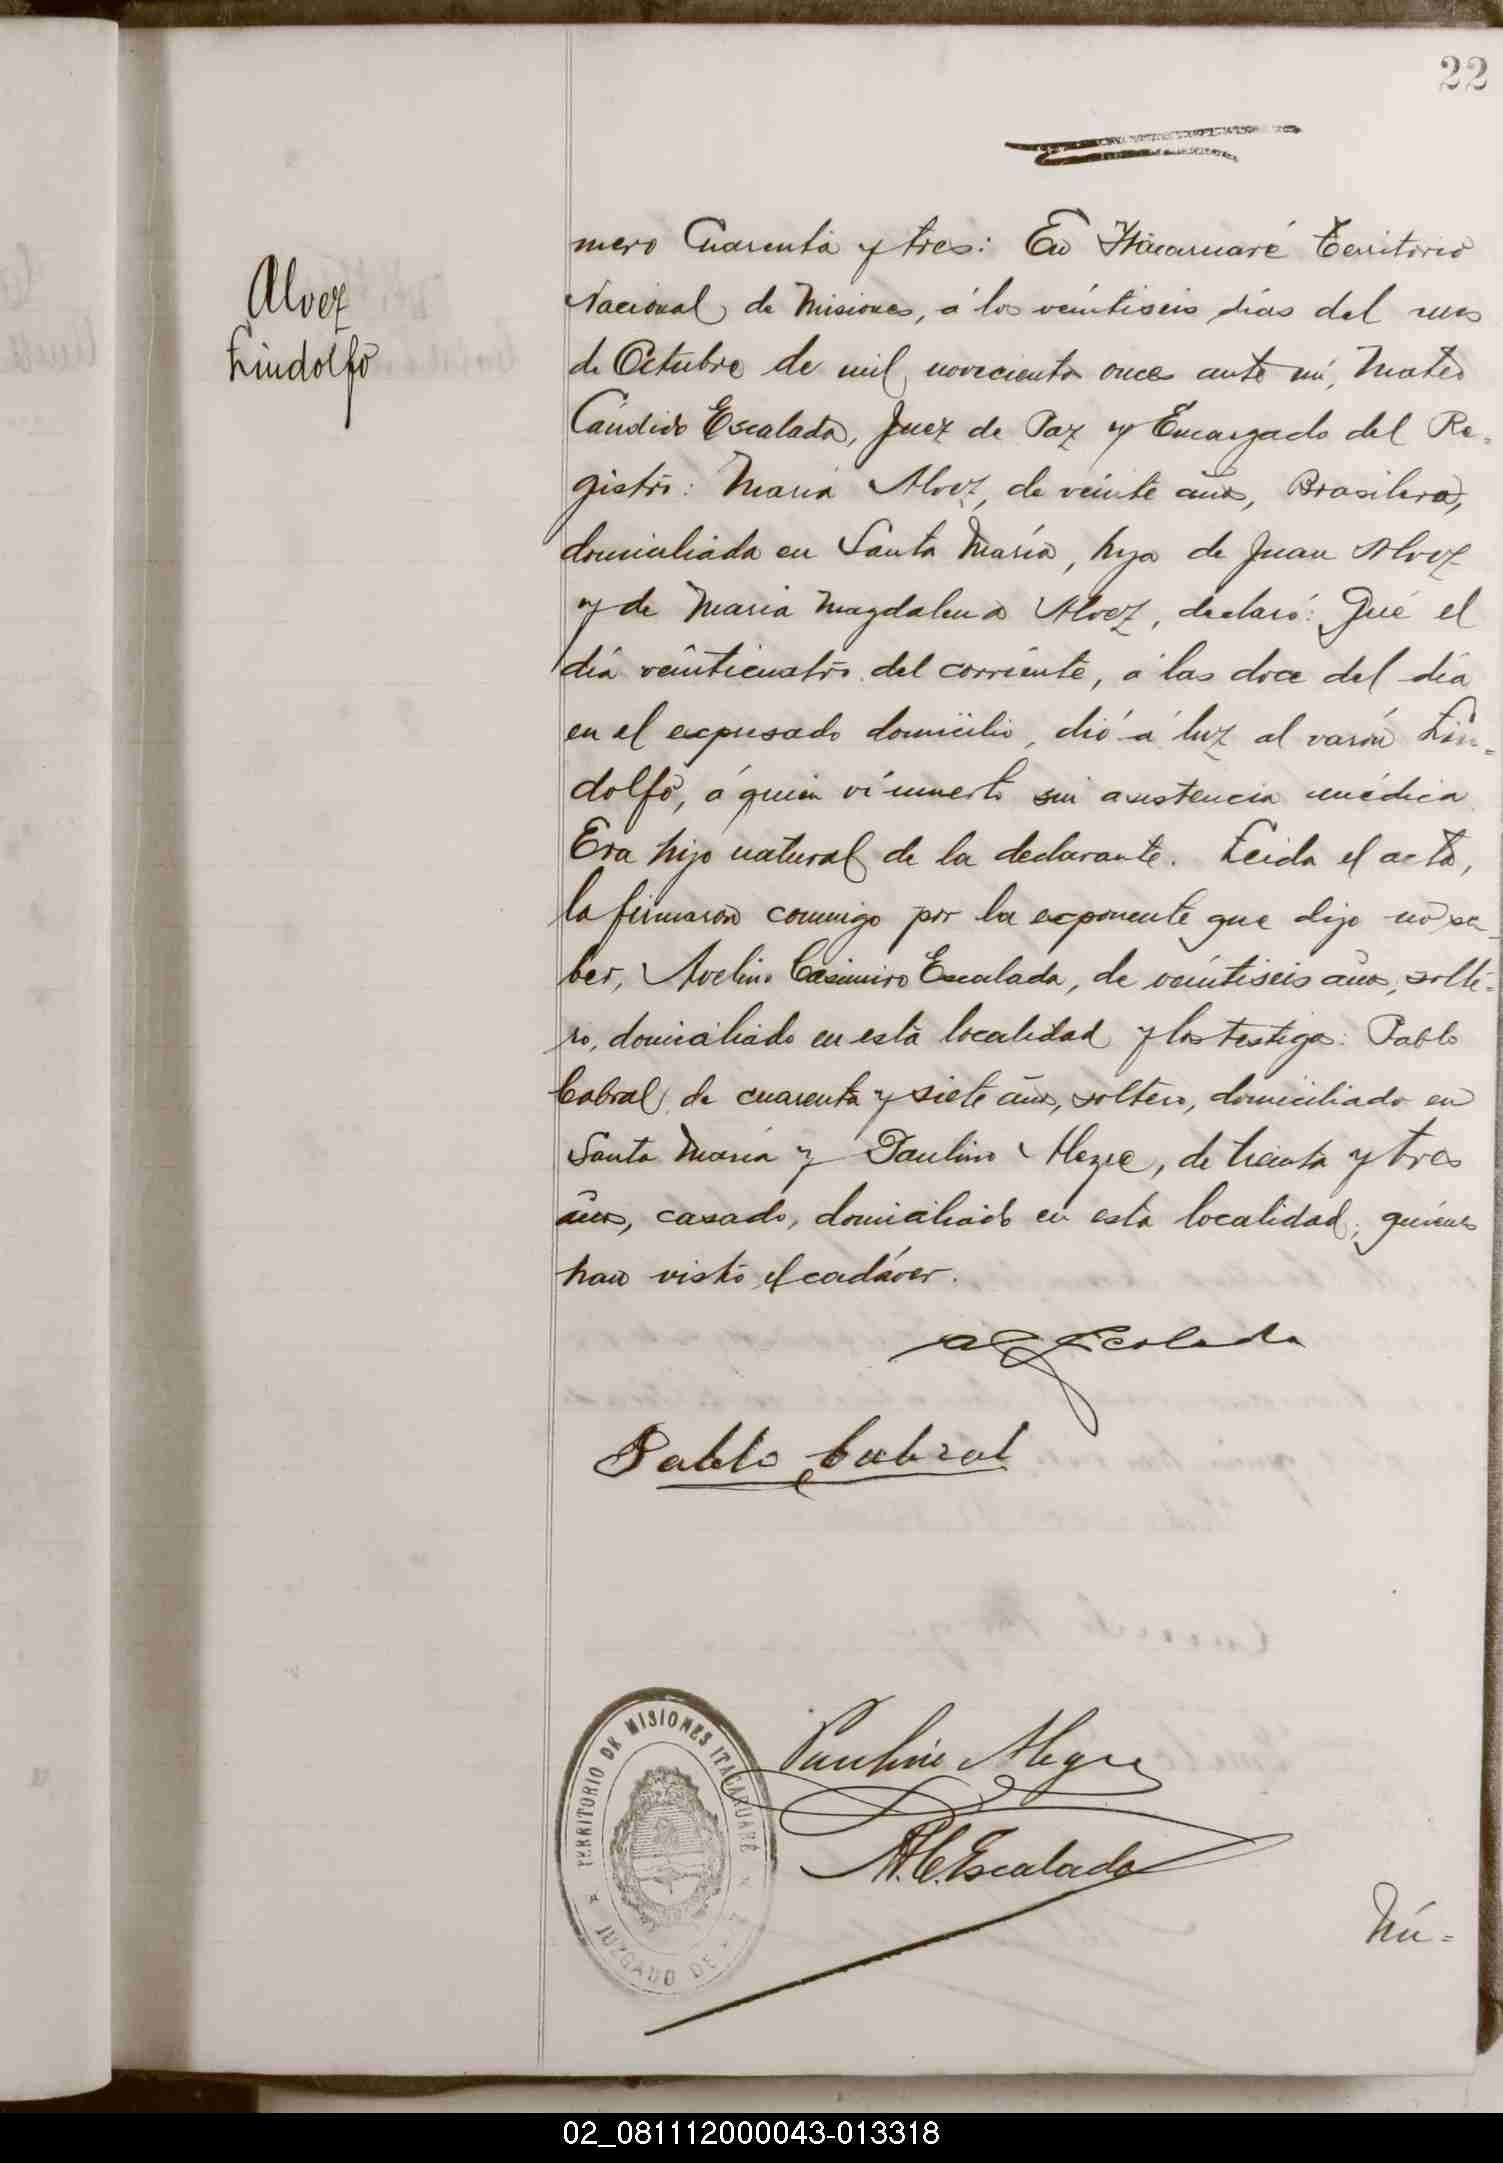 22
Alvez
Lindolfo
mero Cuarenta y tres: En Itacaruaré Territorio
Nacional de Misiones, á los veintiseis dias del mes
de Octubre de mil novecientos once ante mí, Mateo
Cándido Escalada, Juez de Paz y Encargado del Re-
gistro: María Alvez, de veinte años, Brasilera,
domiciliada en Santa María, hija de Juan Alvez
y de María Magdalena Alvez, declaró: Que el
día veinticuatro del corriente, á las doce del día
en el expresado domicilio, dió á luz al varón Lin-
dolfo, á quien ví muerto sin asistencia médica.
Era hijo natural de la declarante. Leida el acta,
la firmaron conmigo por la exponente que dijo no sa-
ber, Avelino Casimiro Escalada, de veintiseis años, solte-
ro, domiciliado en esta localidad y los testigos: Pablo
Cabral, de cuarenta y siete años, soltero, domiciliado en
Santa María y Paulino Alegre, de treinta y tres
años, casado, domiciliado en esta localidad, quienes
han visto el cadáver.
Escalada
Pablo Cabral
Paulino Alegre
M.C.Escalada
TERRITORIO DE MISIONES ITACARUARÉ
JUZGADO DE
Nú-
02_081112000043-013318